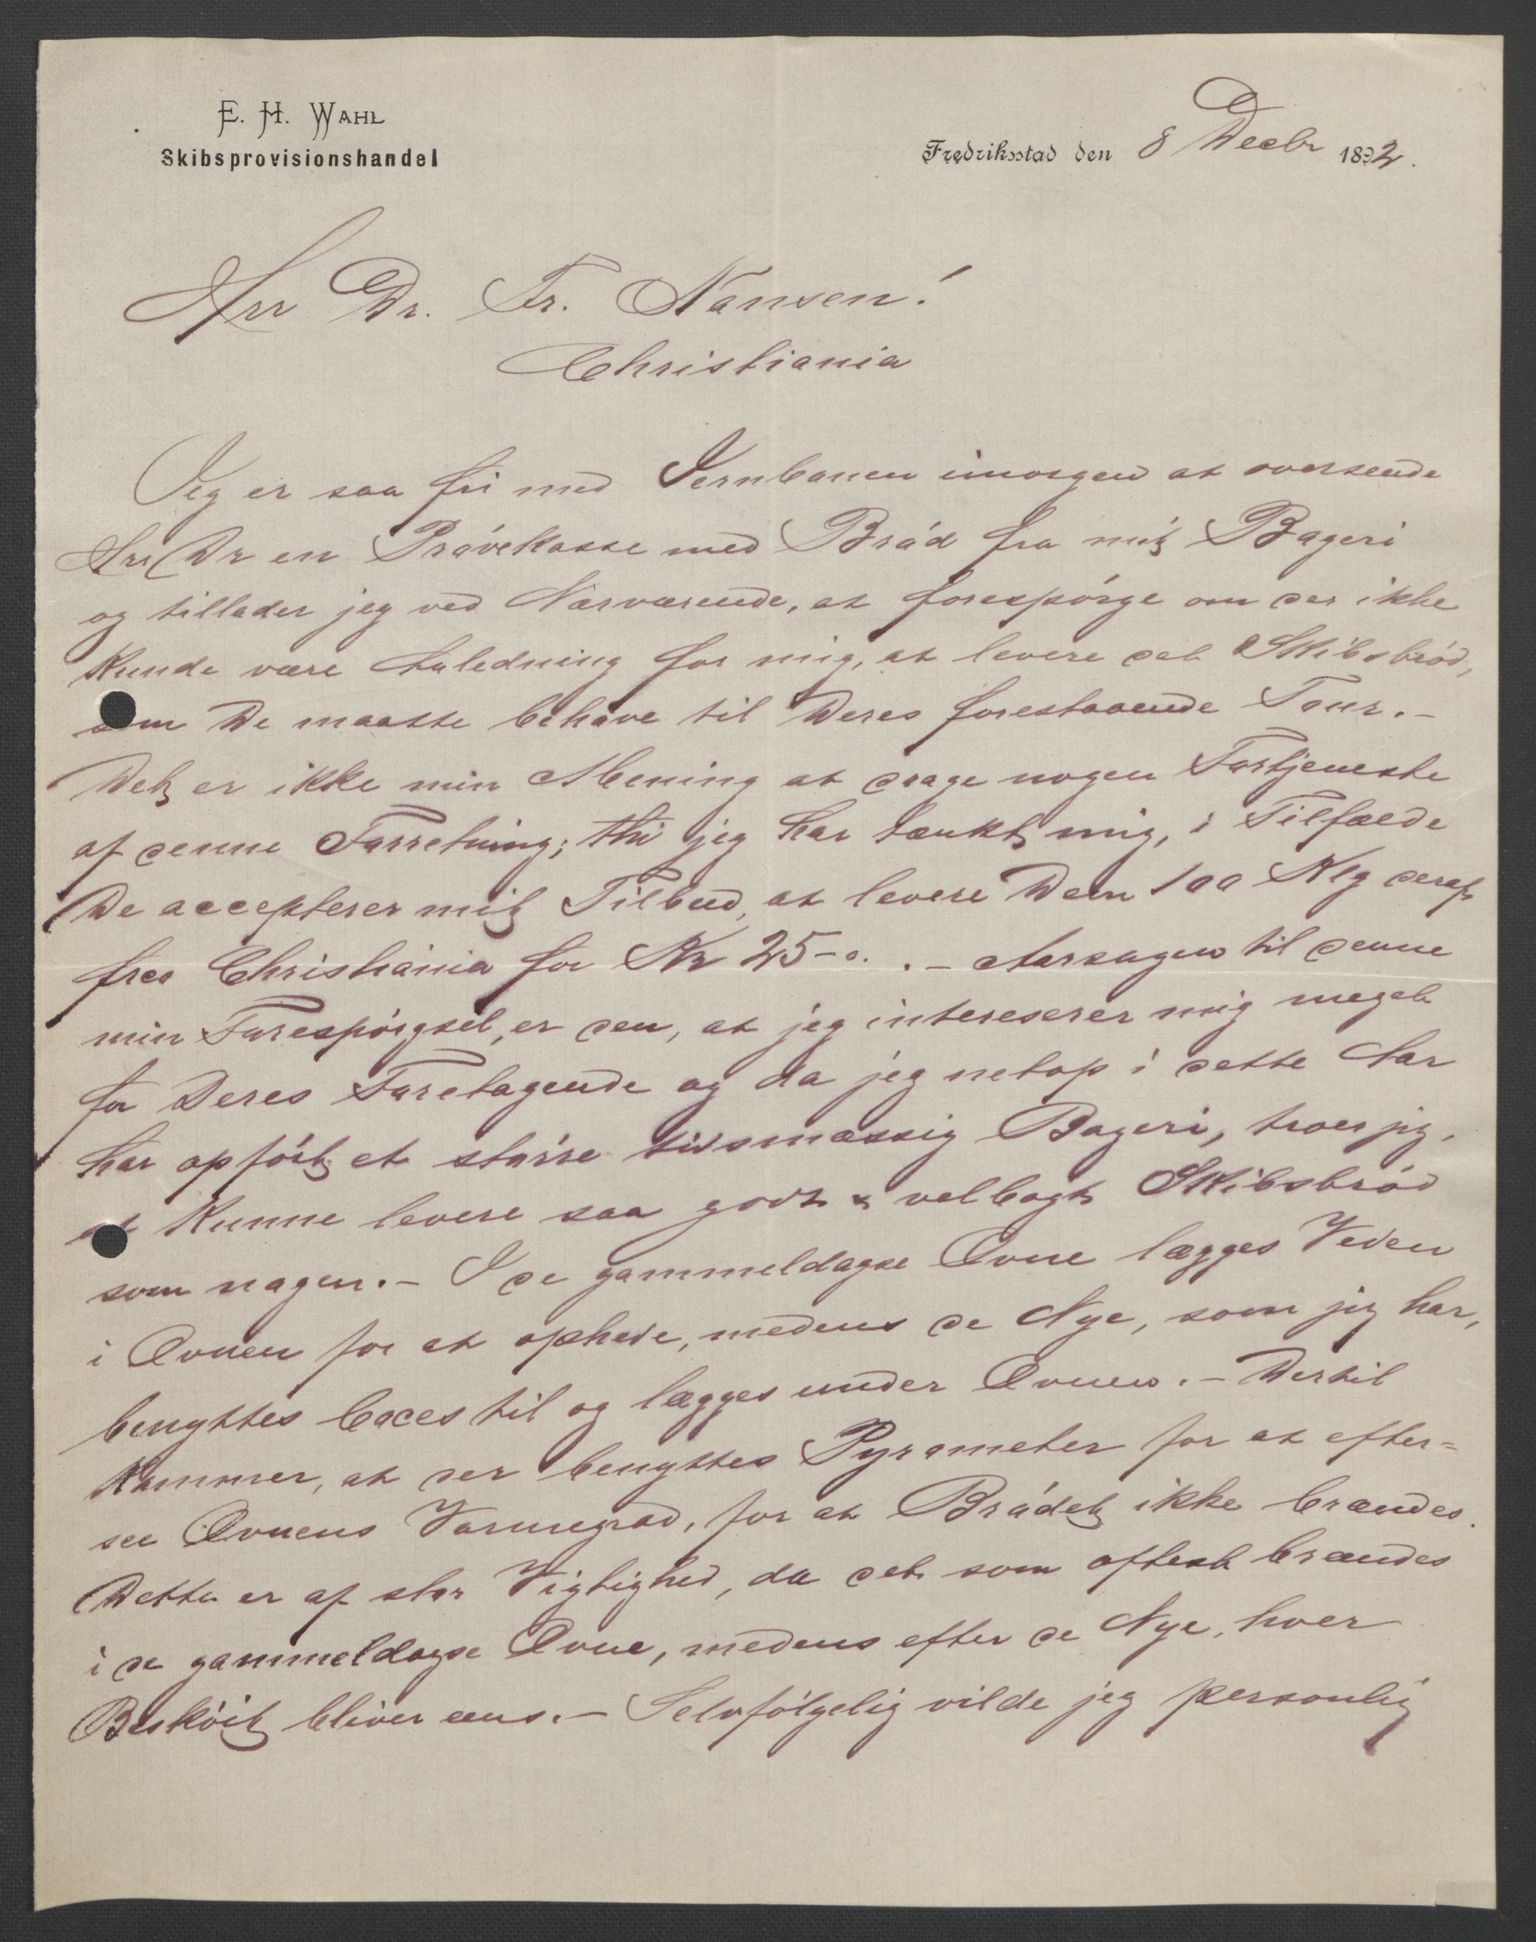 E. H. WAHL
Skibsprovisionshandel
Fredriksstad den 8 Decbr 1892.
Hrr Dr. Fr. Nansen!
Christiania
Jeg er saa fri med Jernbanen imorgen at oversende
Hrr Dr en Prövekasse med Bröd fra mit Bageri
og tillader jeg ved Nærværende, at forespörge om der ikke
kunde være Anledning for mig, at levere det Skibsbröd,
som De maatte behöve til Deres forestaaende Tour. –
Det er ikke min Mening at drage nogen Fortjeneste
af denne Forretning; thi jeg har tænkt mig, i Tilfælde
De accepterer mit Tilbud, at levere Dem 100 Klg deraf
fra Christiania for Kr 25-0. . – Aarsagen til denne
min Forespörgsel, er den, at jeg intereserer mig meget
for Deres Foretagende og da jeg netop i dette Aar
har opfört et större tidsmæssig Bageri, troer jeg,
at kunne levere saa godt & velbagt Skibsbröd
som nogen. – I de gammeldagse Ovne lægges Veden
i Ovnen for at ophede, medens de Nye, som jeg har,
benyttes Coces til og lægges under Ovnen. – Dertil
kommer, at der benyttes Pyrometer for at efter=
see Ovnens Varmegrad, for at Brödet ikke brændes.
Dette er af stor Vigtighed, da det som oftest brændes
i de gammeldagse Ovne, medens efter de Nye, hver
Besköit bliver eens. – Selvfölgelig vilde jeg personlig